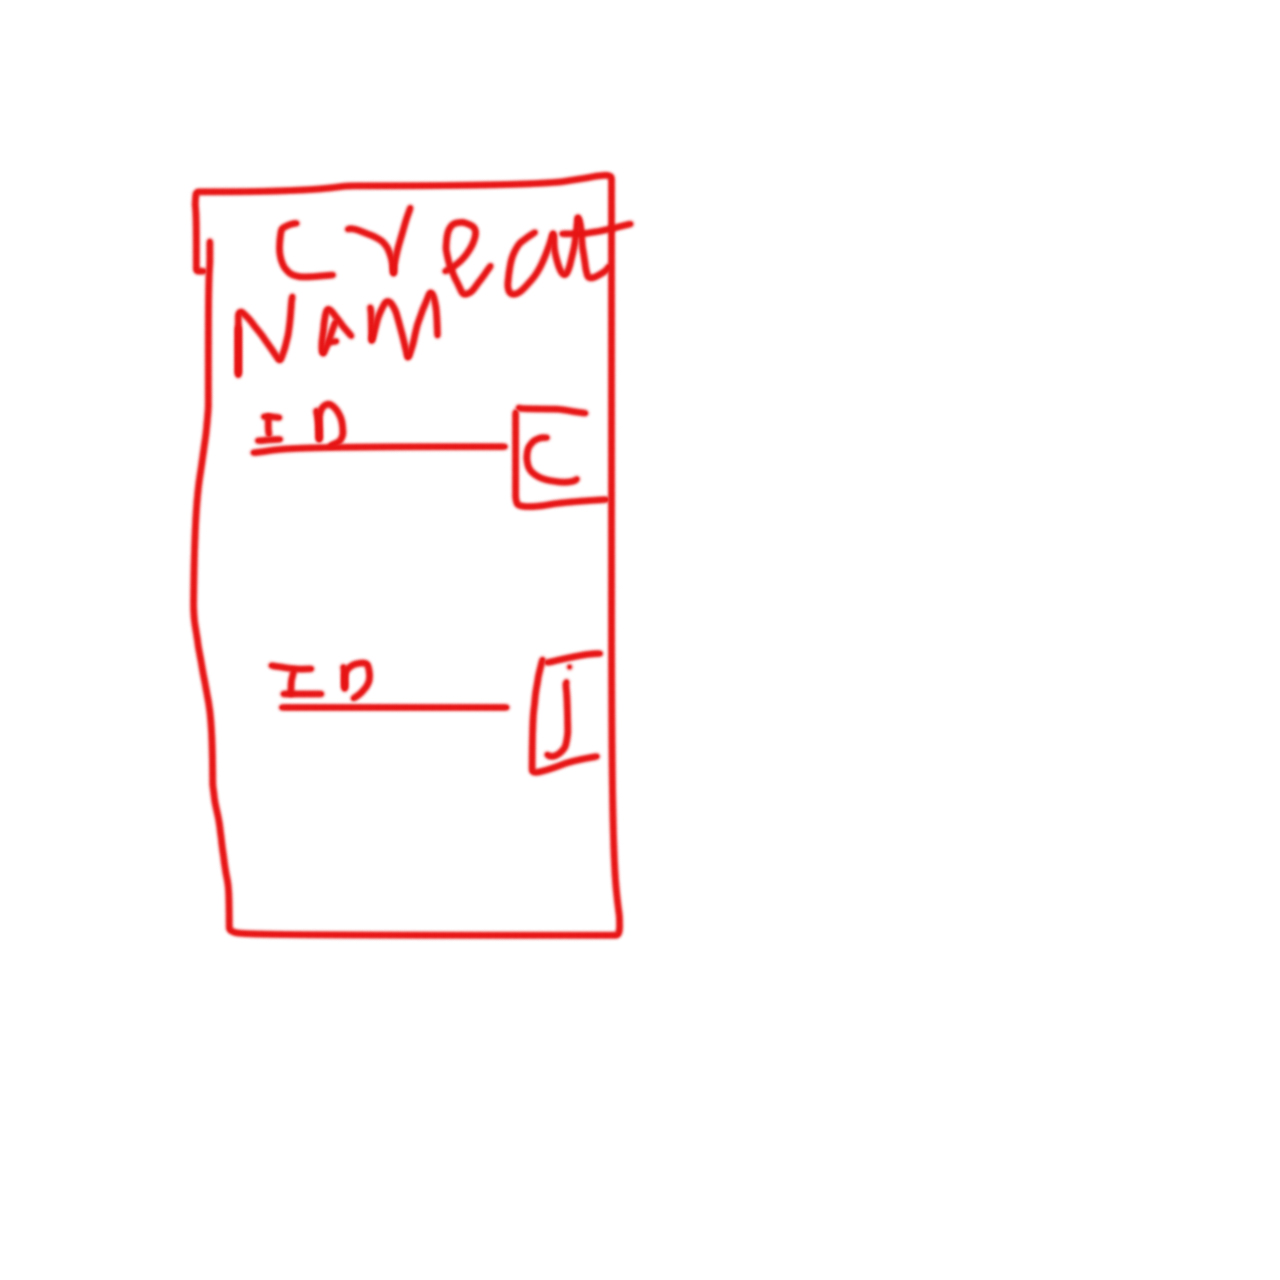 Creat
NAM
ID C
ID j